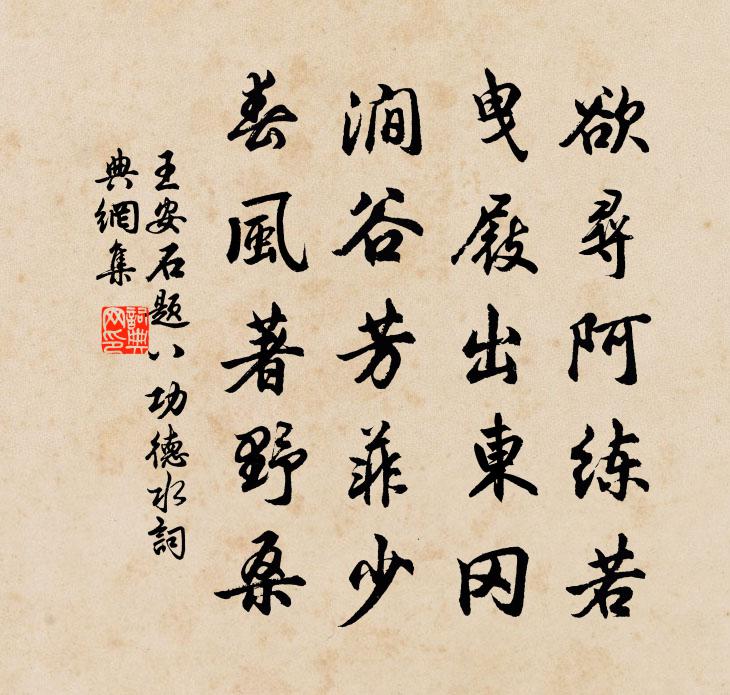 欲尋阿练若
曳屐出東冈
澗谷芳菲少
春風著野桑
王安石題八功德水詞
典網集
詞典網印